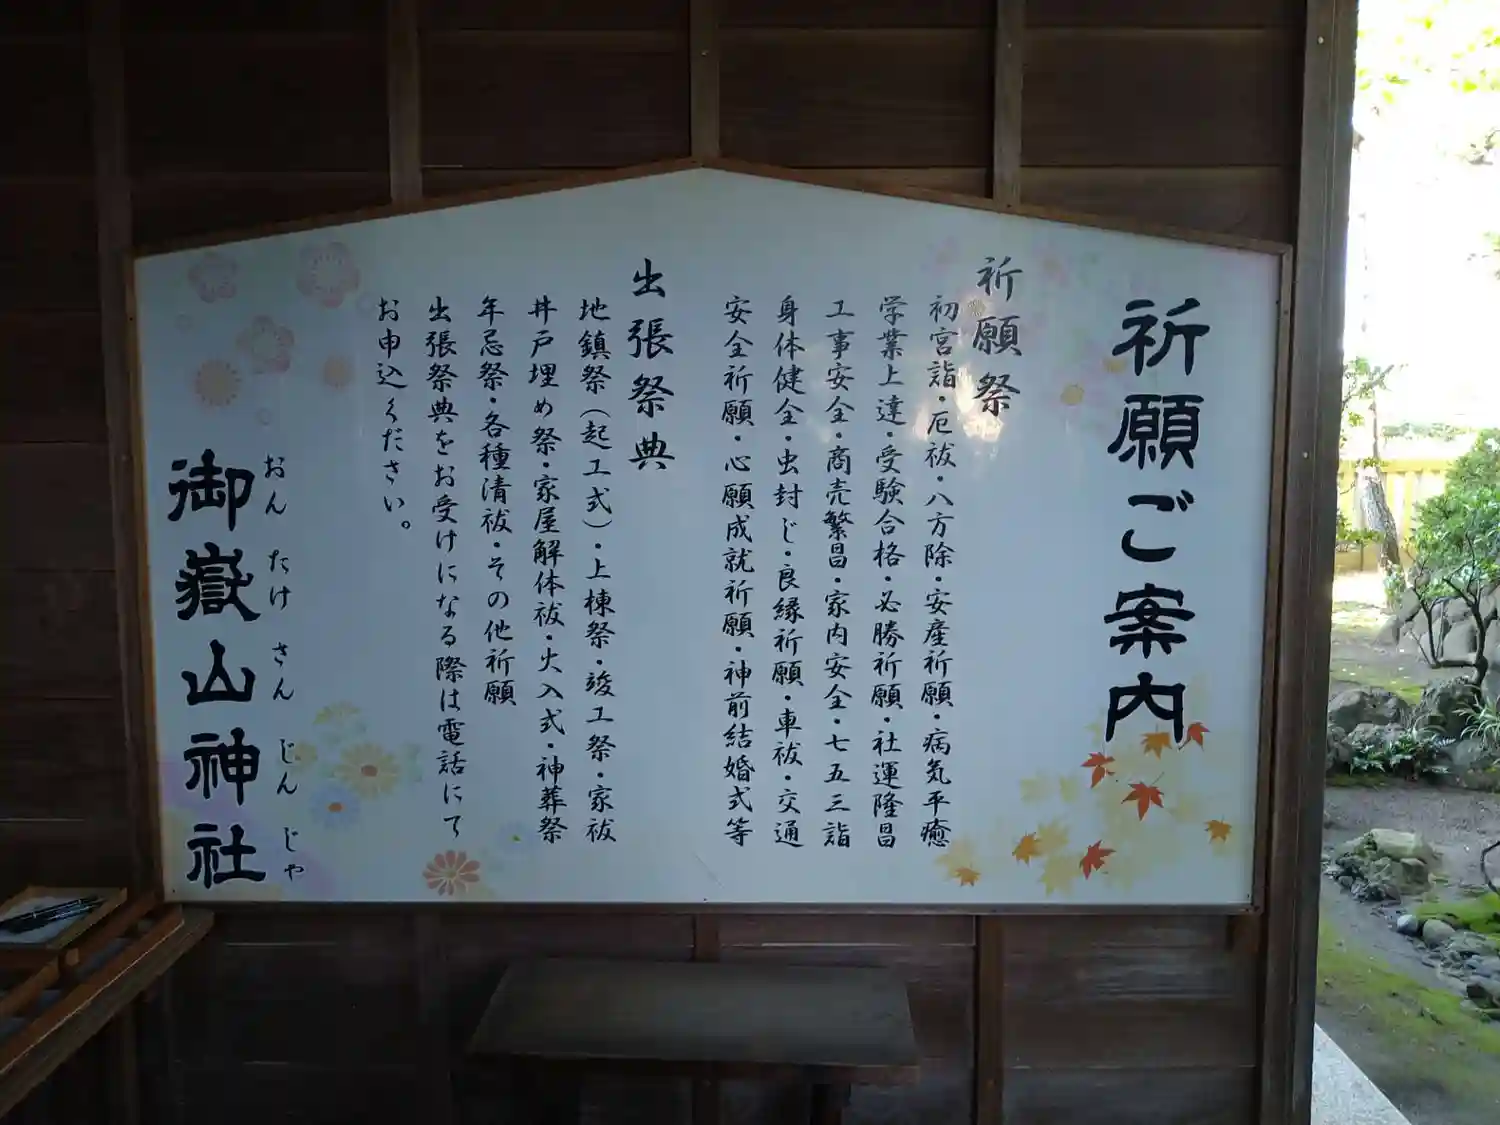 祈願ご案内
祈願祭
初宮詣・厄祓・八方除・安産祈願・病気平癒
学業上達・受験合格・必勝祈願・社運隆昌
工事安全・商売繁昌・家内安全・七五三詣
身体健全・虫封じ・良縁祈願・車祓・交通
安全祈願・心願成就祈願・神前結婚式等
出張祭典
地鎮祭(起工式)・上棟祭・竣工祭・家祓
井戸埋め祭・家屋解体祓・火入式・神葬祭
年忌祭・各種清祓・その他祈願
出張祭典をお受けになる際は電話にて
お申込ください。
おんたけさんじんじゃ
御嶽山神社